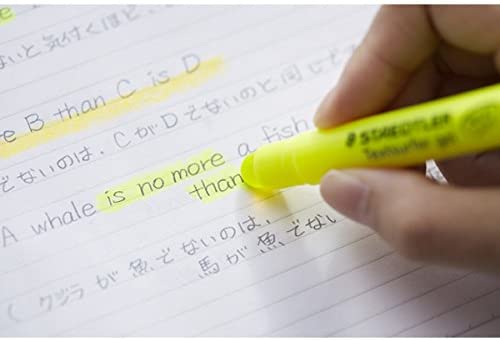 ないと気付くほど、
re B than C is D
でないのは、CがDでないのと同じ
A whale is no more a fish
than
( クジラが魚でないのは、
馬が魚でない
STAEDTLER